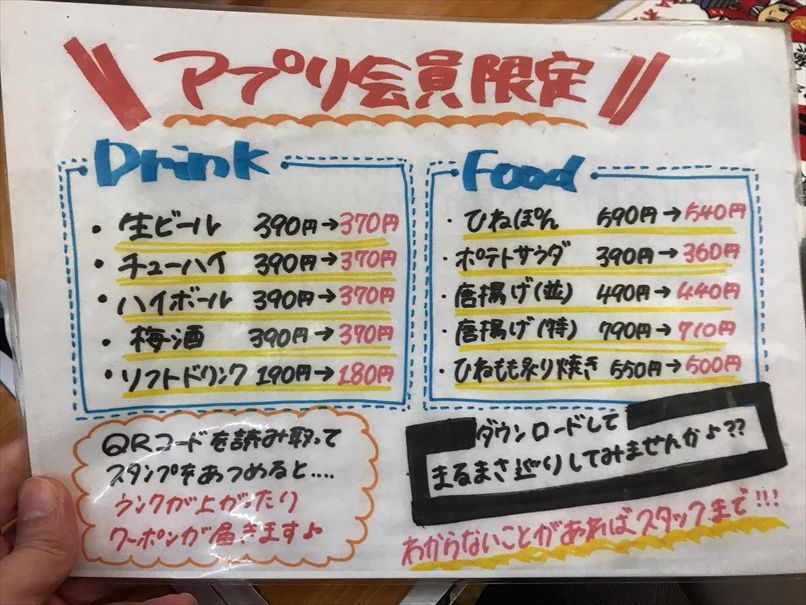 アプリ会員限定
Drink
・生ビール 390円→370円
・チューハイ 390円→370円
・ハイボール 390円→370円
・梅酒 390円→370円
・ソフトドリンク 190円→180円
Food
・ひねぽん 590円→540円
・ポテトサラダ 390円→360円
・唐揚げ(並) 490円→440円
・唐揚げ(特) 790円→710円
・ひねもも炙り焼き 550円→500円
QRコードを読み取って
スタンプをあつめると....
ランクが上がったり
クーポンが届きます♪
ダウンロードして
まるまさ巡りしてみませんか♪??
わからないことがあればスタッフまで!!!